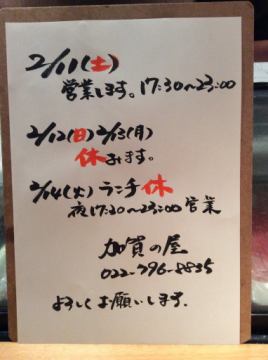 2/11(土)
営業します。17:30~23:00
2/12(日) 2/13(月)
休みます。
2/14(火) ランチ 休
夜17:30~23:00 営業
加賀の屋
022-796-8835
よろしくお願いします.